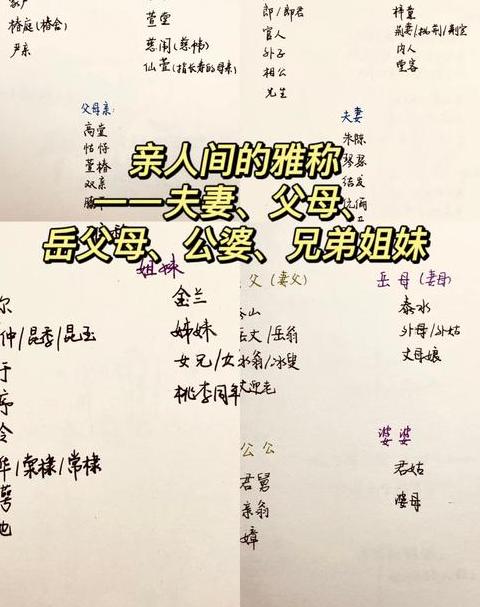 椿庭(椿舍)
尹亲
萱堂
慈闱(慈帏)
仙萱(指长寿的母亲)
父母亲:
高堂
怙恃
萱椿
双亲
郎/郎君
官人
外子
相公
先生
梓童
内人
堂客
夫妻
朱陈
琴瑟
结发
伉俪
亲人间的雅称
——夫妻、父母、
岳父母、公婆、兄弟姐妹
尔
仲/昆季/昆玉
于
序
华/棠棣/常棣
萼
也
姐妹
金兰
姊妹
女兄/女
桃李同年
父(妻父)
岳丈/岳翁
冰翁/冰叟
岳母(妻母)
泰水
外母/外姑
丈母娘
公公
君舅
亲翁
嫜
婆婆
君姑
婆母